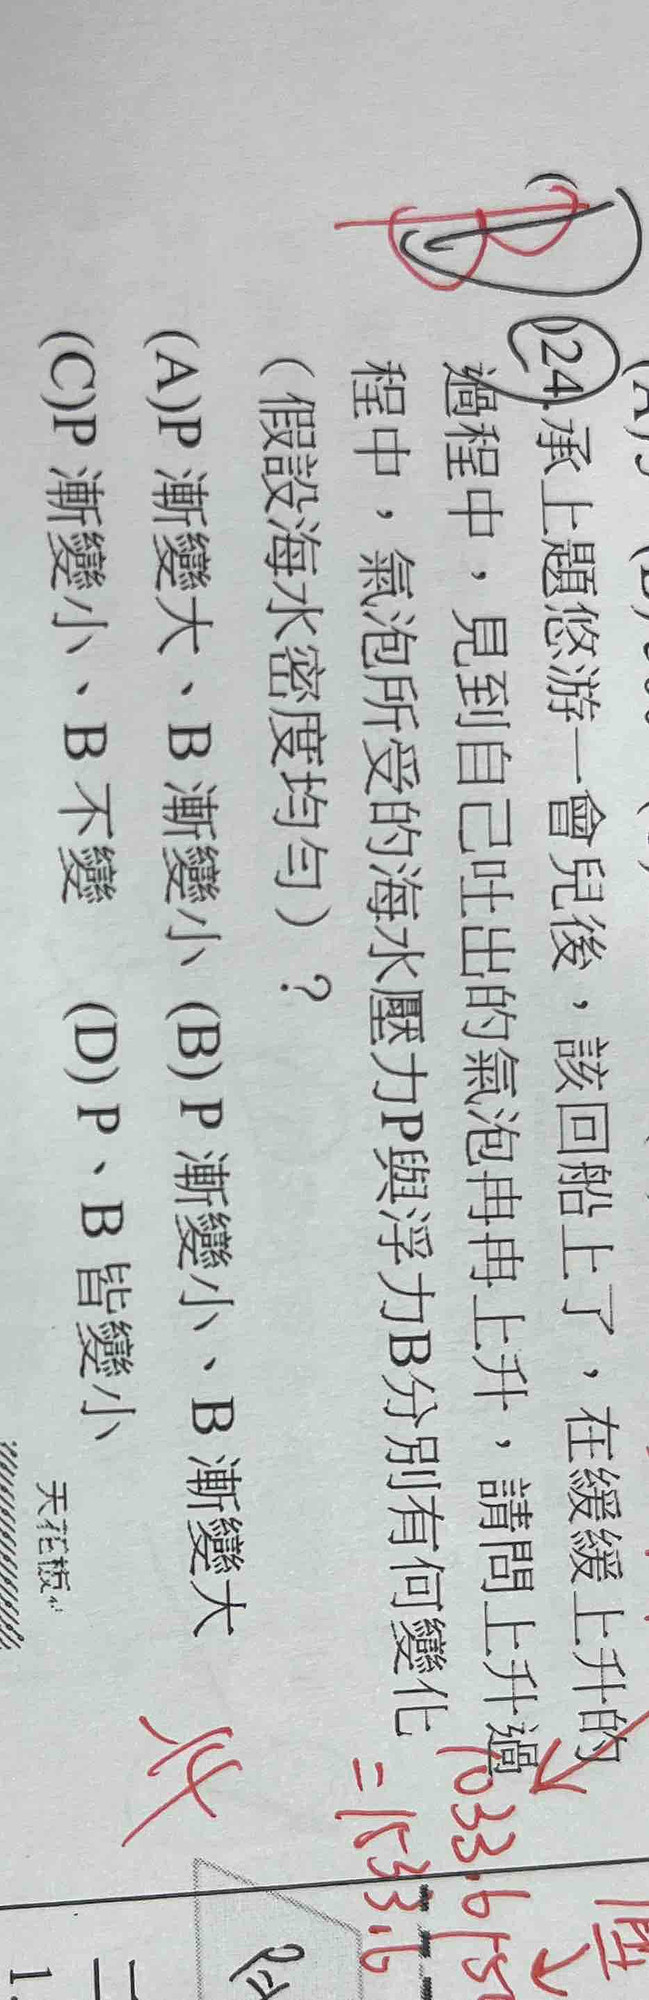 B
)24.承上題悠游一會兒後，該回船上了，在緩緩上升的
過程中，見到自己吐出的氣泡冉冉上升，請問上升過
程中，氣泡所受的海水壓力P與浮力B分別有何變化
（假設海水密度均勻）？
(A)P 漸變大、B 漸變小 (B) P 漸變小、B 漸變大
(C)P 漸變小、B 不變 (D) P、B 皆變小
天花板
1033.6
=1533.6
二
1.